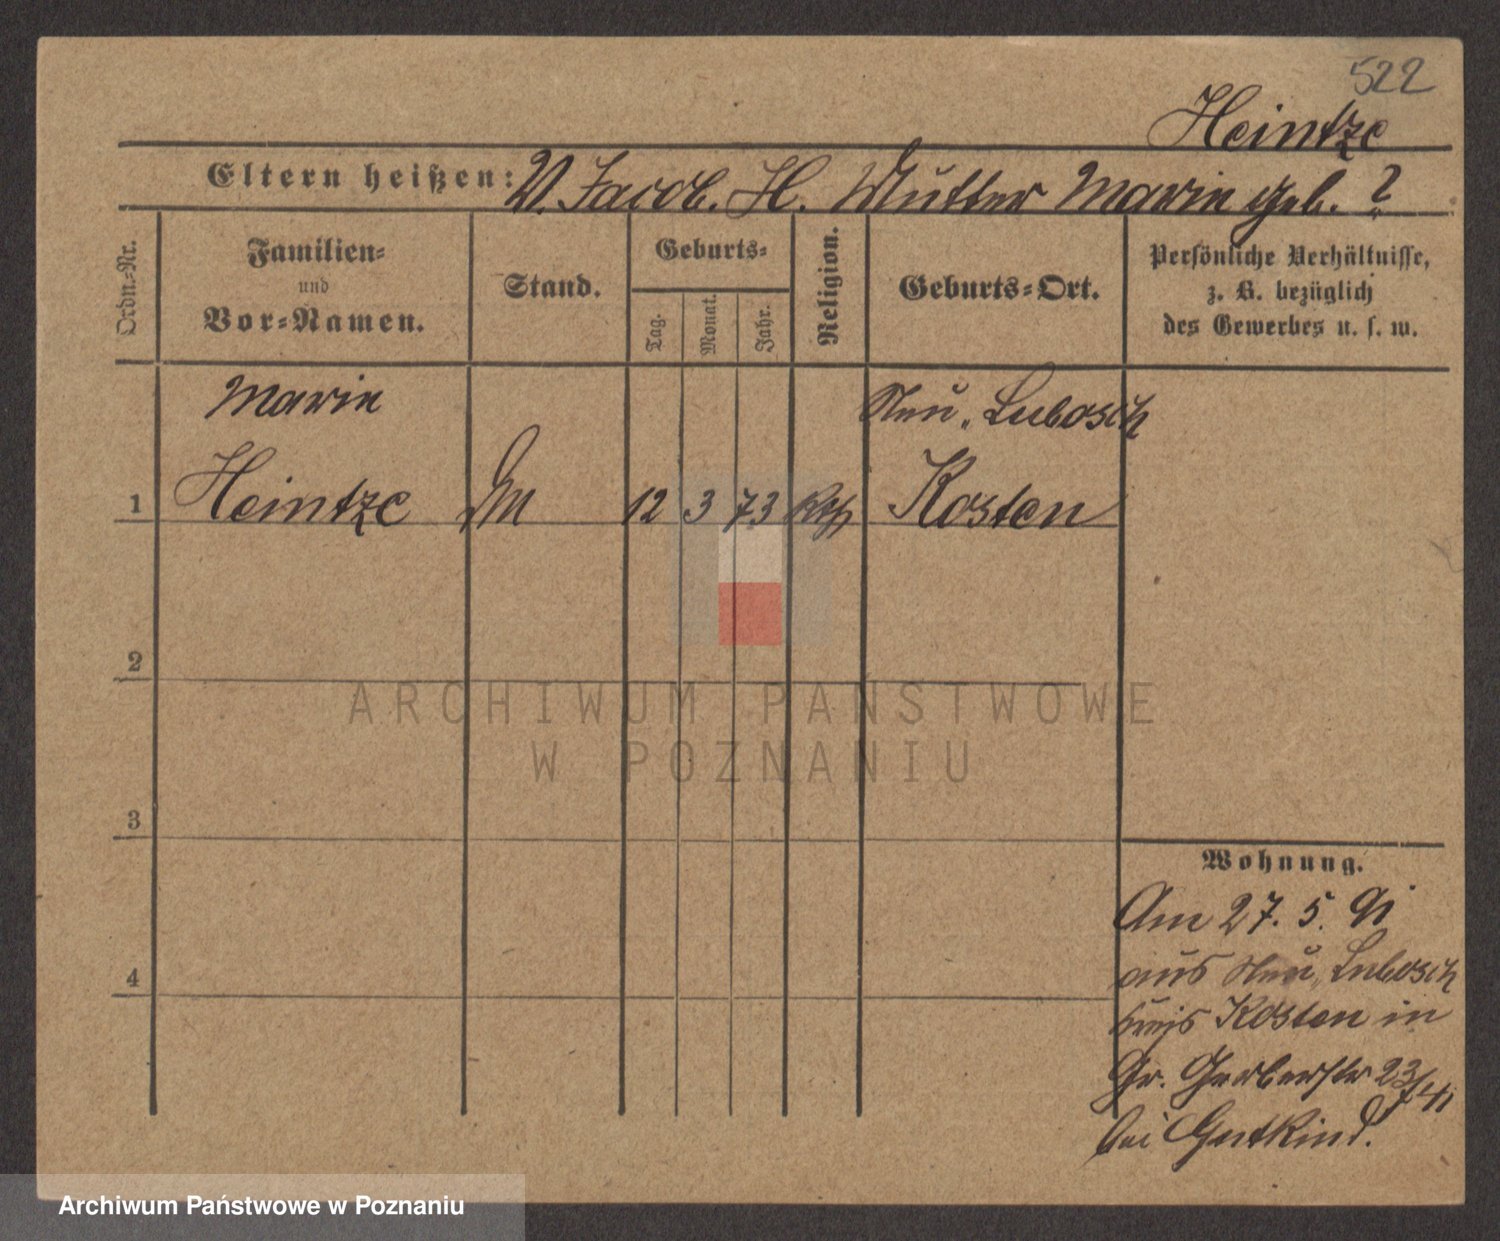 522
Heintze
Eltern heißen: V. Jacob. H. Mutter Marie geb. ?
Ordn.-Nr.
Familien-
und
Vor-Namen.
Stand.
Geburts-
Tag.
Monat.
Jahr.
Religion.
Geburts-Ort.
Persönliche Verhältnisse,
z. B. bezüglich
des Gewerbes u. s. w.
Marie
Neu „ Lubosch
1 Heintze 12 3 73 Kth Kosten
2
3
4
Wohnung.
Am 27. 5. 91
aus Neu „ Lubosch
Kreis Kosten in
Gr. Gerberstr 23/
bei Gutkind.
ARCHIWUM PAŃSTWOWE
W POZNANIU
Archiwum Państwowe w Poznaniu